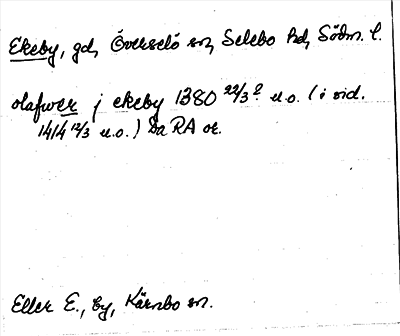 Ekeby, gd, Överselö sn, Selebo hd, Södm. l.
olafwer j ekeby 1380 22/3? u.o. (i vid.
1414 12/3 u.o.) Da RA or.
Eller E., by, Kärnbo sn.